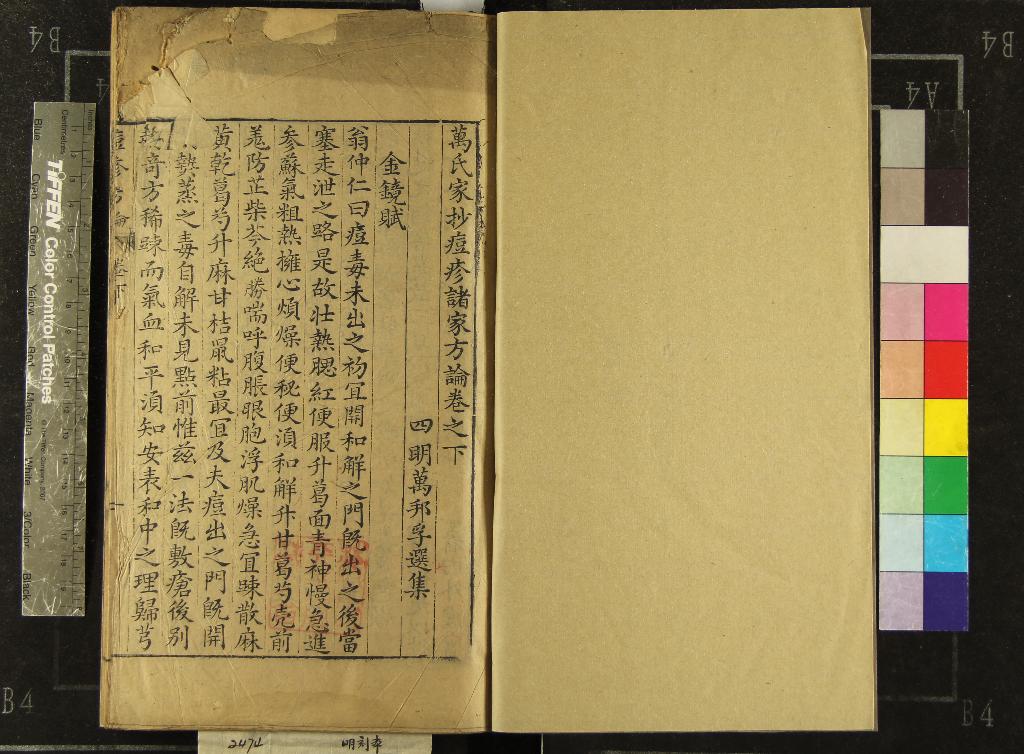 萬氏家抄痘疹諸家方論卷之下
四明萬邦孚選集
金鏡賦
翁仲仁曰痘毒未出之初宜開和解之門旣出之後當
塞走泄之路是故壯熱腮紅便服升葛面青神慢急進
參蘇氣粗熱擁心煩燥便秘便湏和解升甘葛芍壳前
羗防芷柴芩絶勝喘呼腹脹眼胞浮肌燥急宜疎散麻
黄乾葛芍升麻甘桔鼠粘最宜及夫痘出之門旣開
熱蒸之毒自解未見點前惟兹一法旣敷瘡後別
無奇方稀疎而氣血和平湏知安表和中之理歸芎
卷下
一
TIFFEN Color Control Patches
Centimetres
Inches
Blue
Cyan
Green
Yellow
Red
Magenta
White
3/Color
Black
B4
B4
B4
B4
A4
2474
明刻本